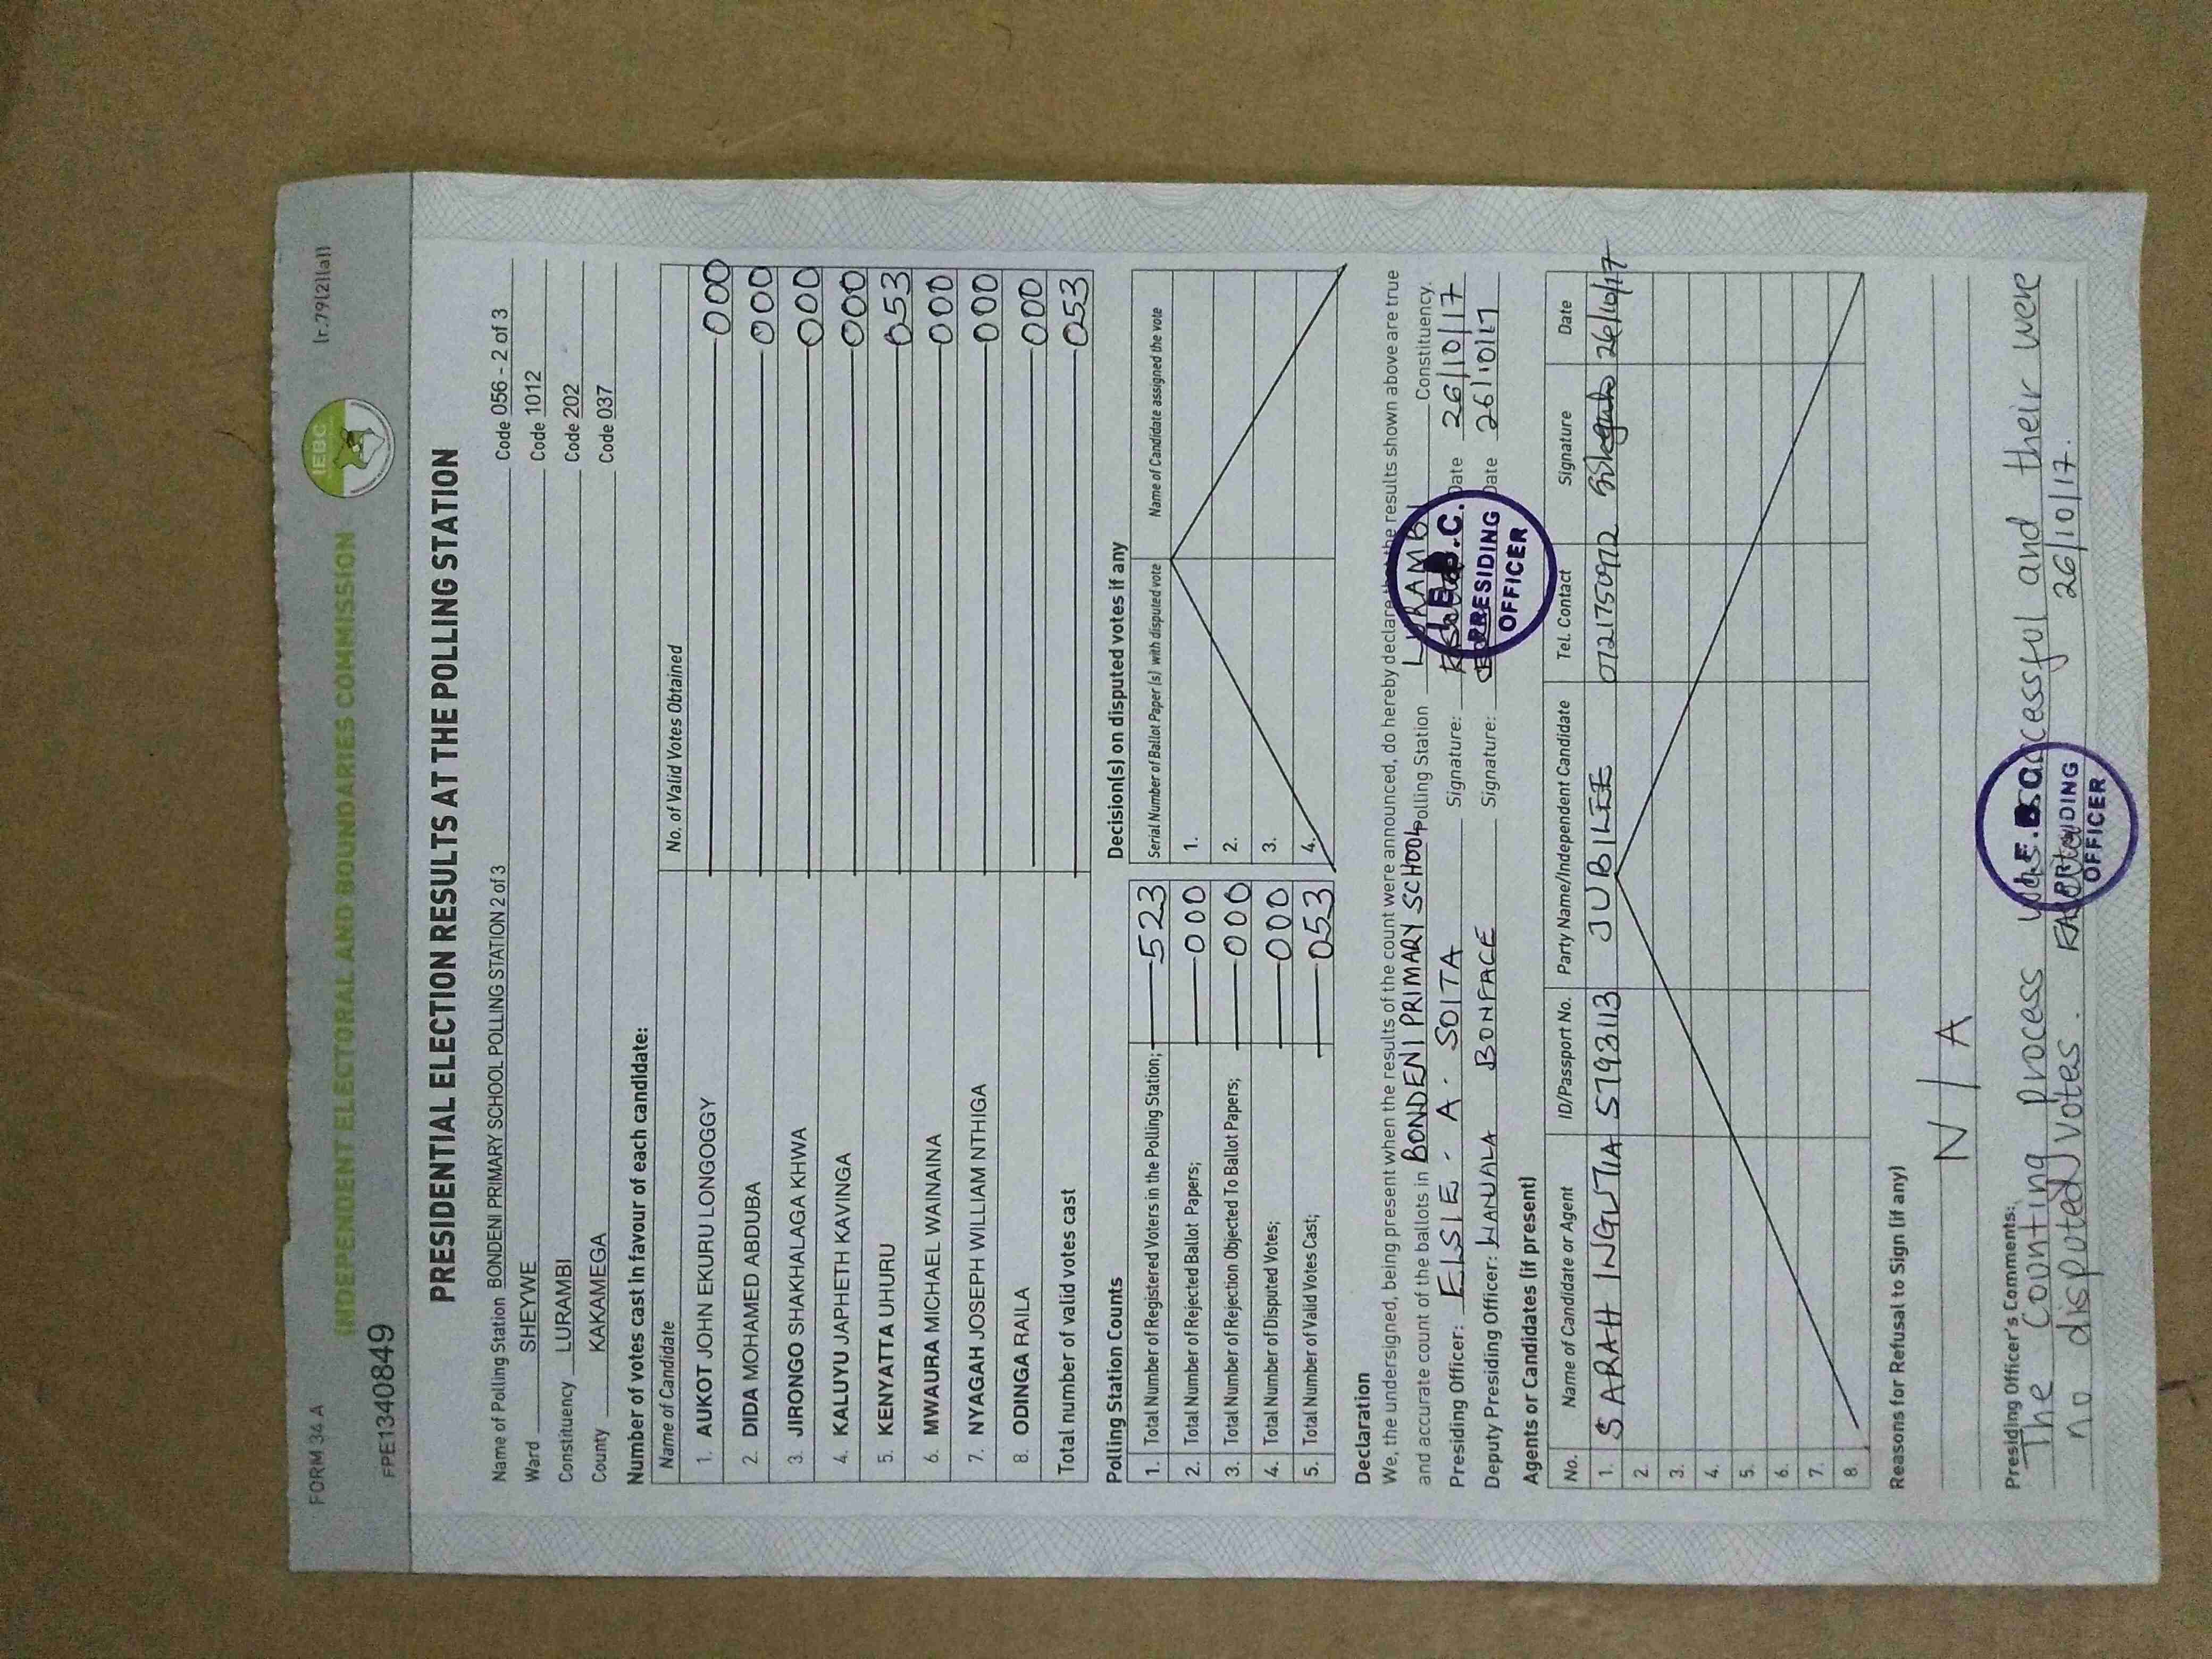 FORM 34 A
(r.79(2)(a))
INDEPENDENT ELECTORAL AND BOUNDARIES COMMISSION
IEBC
FPE1340849
PRESIDENTIAL ELECTION RESULTS AT THE POLLING STATION
Name of Polling Station BONDENI PRIMARY SCHOOL POLLING STATION 2 of 3 Code 056 - 2 of 3
Ward SHEYWE Code 1012
Constituency LURAMBI Code 202
County KAKAMEGA Code 037
Number of votes cast in favour of each candidate:
Name of Candidate No. of Valid Votes Obtained
1. AUKOT JOHN EKURU LONGOGGY 000
2. DIDA MOHAMED ABDUBA 000
3. JIRONGO SHAKHALAGA KHWA 000
4. KALUYU JAPHETH KAVINGA 000
5. KENYATTA UHURU 053
6. MWAURA MICHAEL WAINAINA 000
7. NYAGAH JOSEPH WILLIAM NTHIGA 000
8. ODINGA RAILA 000
Total number of valid votes cast 053
Polling Station Counts
1. Total Number of Registered Voters in the Polling Station; 523
2. Total Number of Rejected Ballot Papers; 000
3. Total Number of Rejection Objected To Ballot Papers; 000
4. Total Number of Disputed Votes; 000
5. Total Number of Valid Votes Cast; 053
Decision(s) on disputed votes if any
Serial Number of Ballot Paper (s) with disputed vote Name of Candidate assigned the vote
1.
2.
3.
4.
Declaration
We, the undersigned, being present when the results of the count were announced, do hereby declare that the results shown above are true
and accurate count of the ballots in BONDENI PRIMARY SCHOOL Polling Station LURAMBI Constituency.
Presiding Officer: ELSIE - A - SOITA Signature: Date 26/10/17
Deputy Presiding Officer: WANUALA BONFACE Signature: Date 26/10/17
I.E.B.C.
PRESIDING
OFFICER
Agents or Candidates (if present)
No. Name of Candidate or Agent ID/Passport No. Party Name/Independent Candidate Tel. Contact Signature Date
1. SARAH INGUTIA 5793113 JUBILEE 0721750972 26/10/17
2.
3.
4.
5.
6.
7.
8.
Reasons for Refusal to Sign (if any)
N/A
Presiding Officer's Comments:
The counting process was successful and their were
no disputed votes. 26/10/17.
I.E.B.C.
PRESIDING
OFFICER